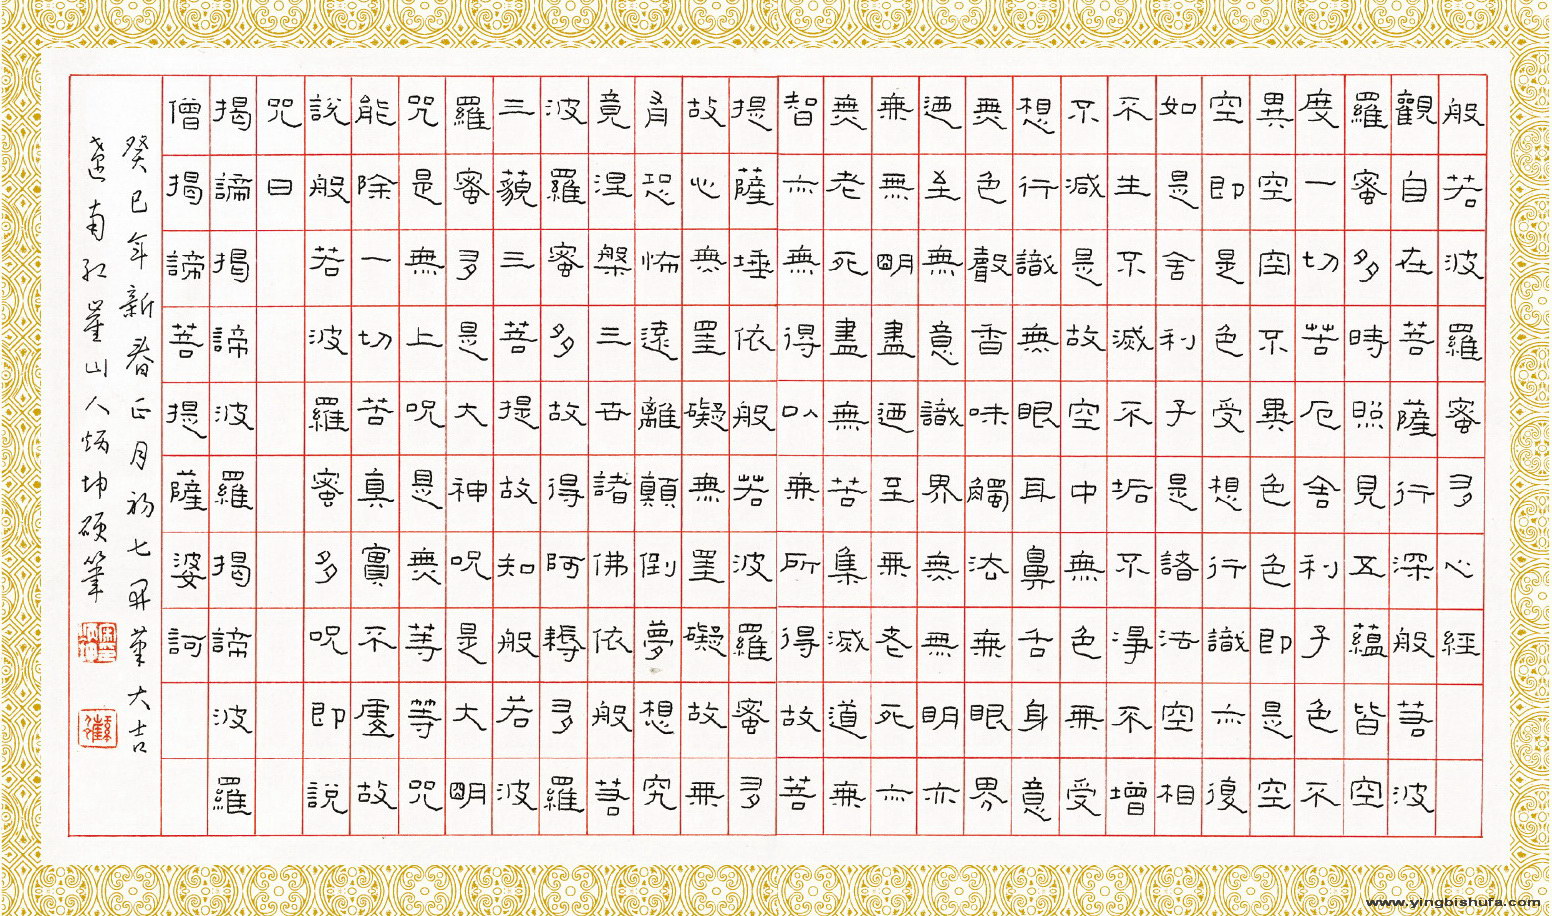 般若波羅蜜多心經
觀自在菩薩行深般若波
羅蜜多時照見五蘊皆空
度一切苦厄舍利子色不
異空空不異色色即是空
空即是色受想行識亦復
如是舍利子是諸法空相
不生不滅不垢不淨不增
不減是故空中無色無受
想行識無眼耳鼻舌身意
無色聲香味觸法無眼界
迺至無意識界無無明亦
無無明盡迺至無老死亦
無老死盡無苦集滅道無
智亦無得以無所得故菩
提薩埵依般若波羅蜜多
故心無罣礙無罣礙故無
有恐怖遠離顛倒夢想究
竟涅槃三世諸佛依般若
波羅蜜多故得阿耨多羅
三藐三菩提故知般若波
羅蜜多是大神呪是大明
咒是無上呪是無等等咒
能除一切苦真實不虛故
說般若波羅蜜多呪即說
咒曰
揭諦揭諦波羅揭諦波羅
僧揭諦菩提薩婆訶
癸巳年新春正月初七開筆大吉
南紅崖山人炳坤硬筆
www.yingbishufa.com